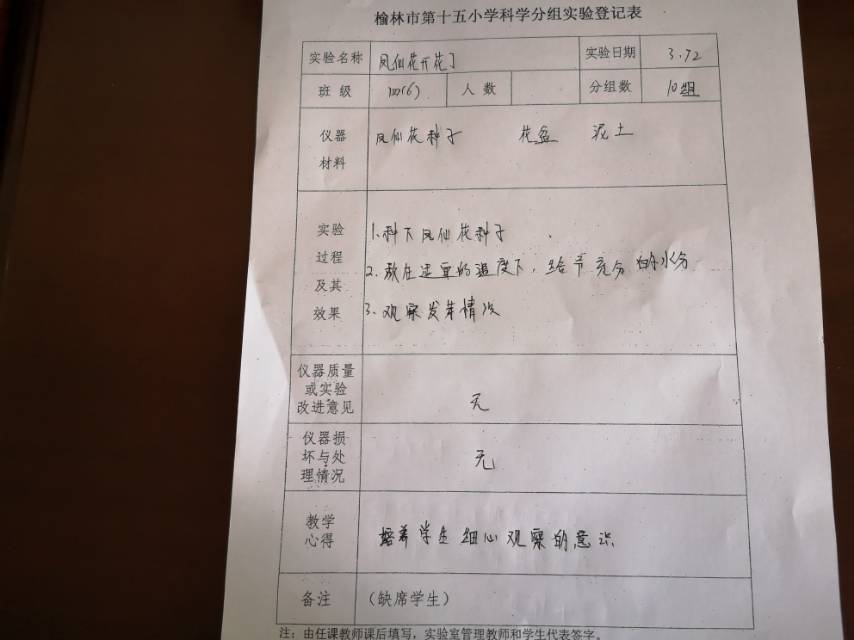 榆林市第十五小学科学分组实验登记表
实验名称 凤仙花开花了 实验日期 3.12
班 级 四(6) 人 数 分组数 10组
仪器
材料
凤仙花种子 花盆 泥土
实验
过程
及其
效果
1.种下凤仙花种子
2.放在适宜的温度下，给予充分的水分
3.观察发芽情况
仪器质量
或实验
改进意见
无
仪器损
坏与处
理情况
无
教学
心得
培养学生细心观察的意识
备注 （缺席学生）
注：由任课教师课后填写，实验室管理教师和学生代表签字。